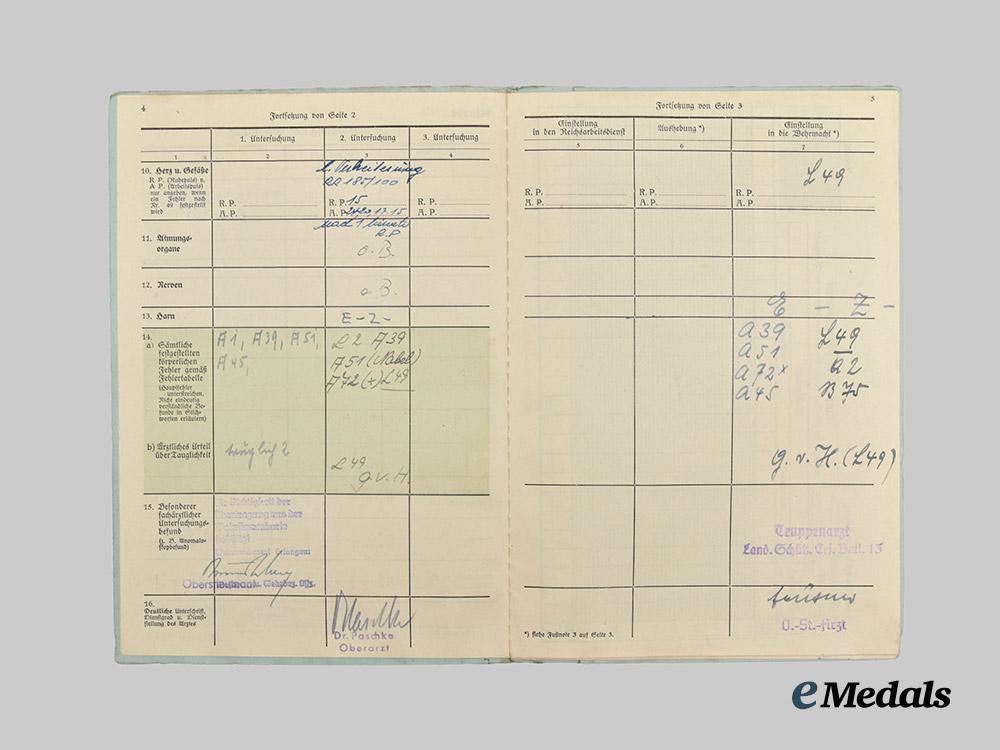 4
Fortsetzung von Seite 2
1. Untersuchung
2. Untersuchung
3. Untersuchung
1
2
3
4
10. Herz u. Gefäße
R. P. (Ruhepuls) u.
A. P. (Arbeitspuls)
nur angeben, wenn
ein Fehler nach
Nr. 49 festgestellt
wird
R. P.
A. P.
l. Verbreiterung
RR 185/100
R. P. 15
A. P.
17-15
nach 1 Minute
R.P
R. P.
A. P.
11. Atmungs-
organe
o. B.
12. Nerven
o. B.
13. Harn
E - Z -
14.
a) Sämtliche
festgestellten
körperlichen
Fehler gemäß
Fehlertabelle
(Hauptfehler
unterstreichen.
Nicht eindeutig
verständliche Be-
funde in Stich-
worten erläutern)
A 1, A 39, A 51,
A 45,
L 2 A 39
A 51 (Nabel)
A 72 (+) L 49
b) Ärztliches Urteil
über Tauglichkeit
tauglich 2
L 49
g. v. H.
15. Besonderer
fachärztlicher
Untersuchungs-
befund
(z. B. Anomalo-
skopbefund)
Richtigkeit der
Übertragung aus der
Erlangen
Oberstleutnant u. Wehrbez. Offz.
16.
Deutliche Unterschrift,
Dienstgrad u. Dienst-
stellung des Arztes
Paschke
Dr. Paschke
Oberarzt
5
Fortsetzung von Seite 3
Einstellung
in den Reichsarbeitsdienst
Aushebung *)
Einstellung
in die Wehrmacht *)
5
6
7
L 49
R. P.
A. P.
R. P.
A. P.
R. P.
A. P.
E - Z -
A 39 L 49
A 51 A 2
A 72x B 75
A 45
g. v. H. (L 49)
Truppenarzt
Land. Schütz. Ers. Batl. 13
O.-St.-Arzt
*) siehe Fußnote 3 auf Seite 3.
eMedals